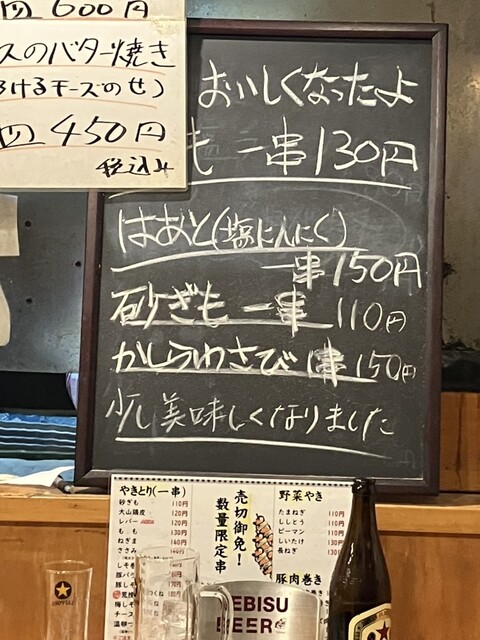 皿 600円
スのバター焼き
ろけるチーズのせ)
皿 450円
税込み
おいしくなったよ
も 一串130円
はあと(塩にんにく)
一串150円
砂ぎも 一串 110円
かしらわさび 1串 150円
少し美味しくなりました
やきとり(一串)
砂ぎも 110円
大山鶏皮 120円
レバー 120円
もも 130円
ねぎま 140円
ささみ 140円
しそ
豚バラ
豚しそ
梅し
チース
温
売切御免!
数量限定串
野菜やき
たまねぎ 110円
ししとう 110円
ピーマン 110円
しいたけ 110円
長ねぎ 130円
豚肉巻き
YEBISU
BEER